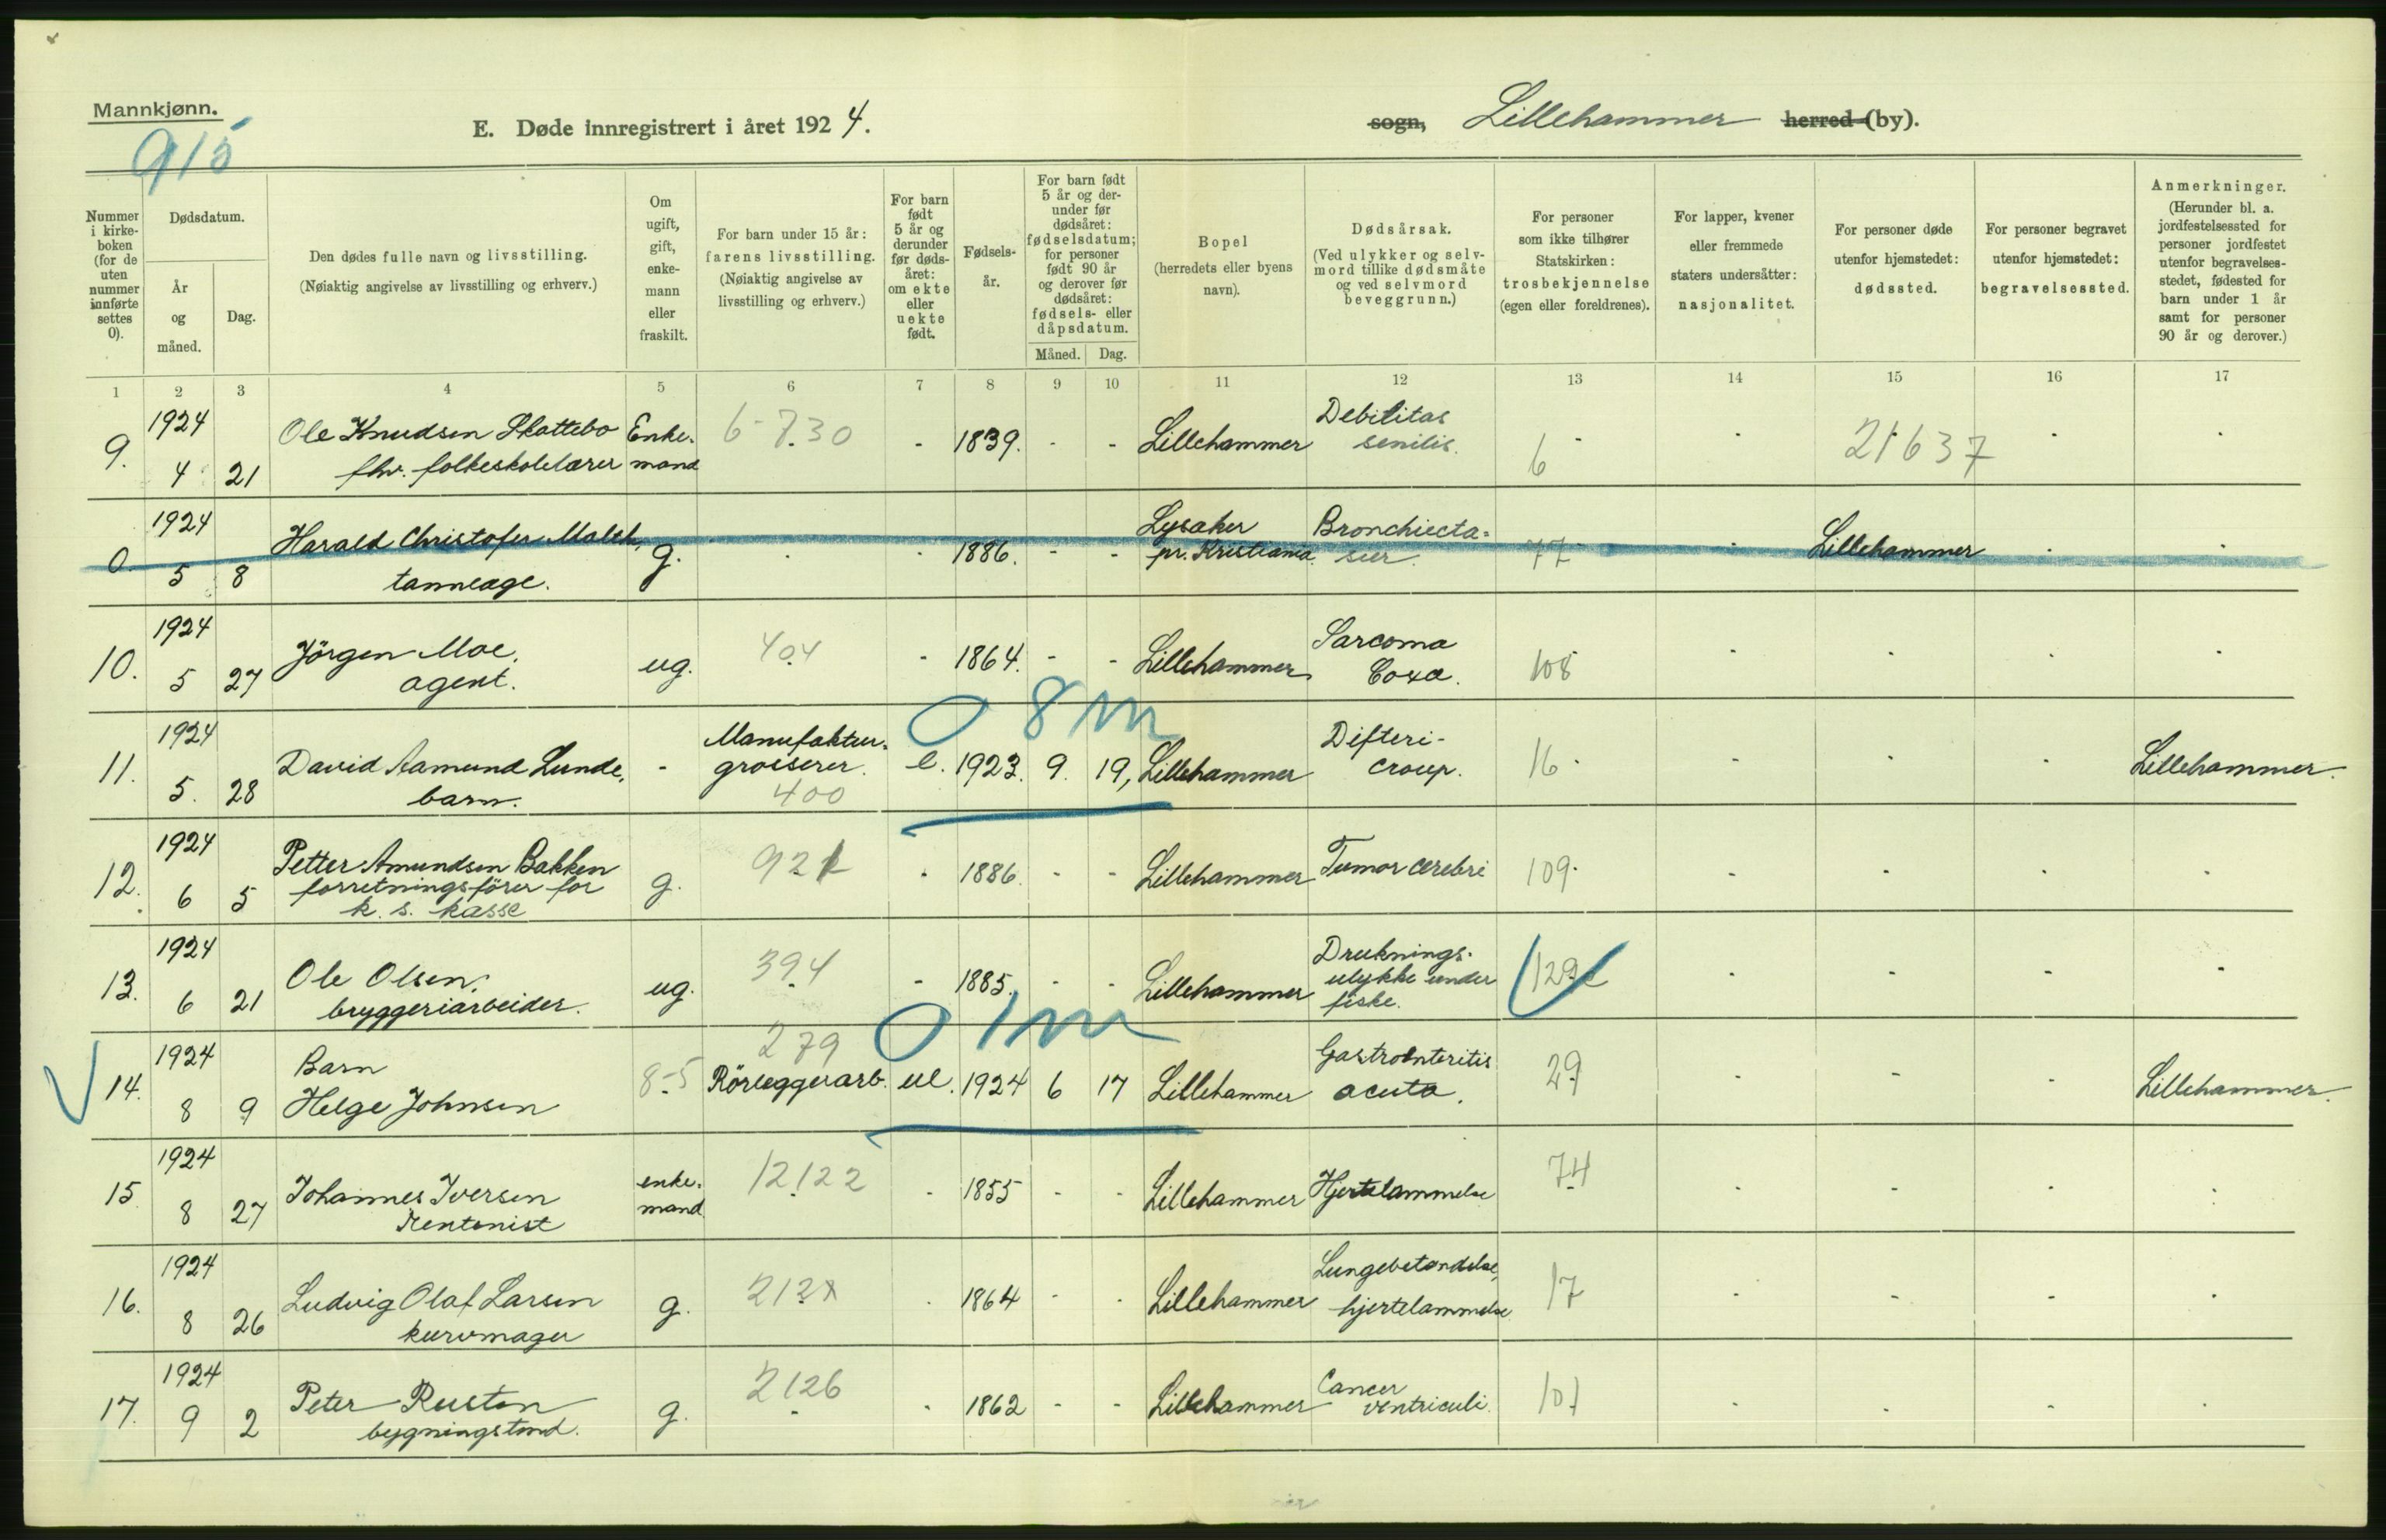 Mannkjønn.
915
E. Døde innregistrert i året 1924.
sogn, Lillehammer herred (by).
Nummer i kirkeboken (for de uten nummer innførte settes 0).
Dødsdatum.
År og måned.
Dag.
Den dødes fulle navn og livsstilling.
(Nøiaktig angivelse av livsstilling og erhverv.)
Om ugift, gift, enkemann eller fraskilt.
For barn under 15 år: farens livsstilling.
(Nøiaktig angivelse av livsstilling og erhverv.)
For barn født 5 år og derunder før dødsåret: om ekte eller uekte født.
Fødselsår.
For barn født 5 år og derunder før dødsåret: fødselsdatum; for personer født 90 år og derover før dødsåret: fødsels- eller dåpsdatum.
Måned. Dag.
Bopel
(herredets eller byens navn).
Dødsårsak.
(Ved ulykker og selvmord tillike dødsmåte og ved selvmord beveggrunn.)
For personer som ikke tilhører Statskirken: trosbekjennelse (egen eller foreldrenes).
For lapper, kvener eller fremmede staters undersåtter: nasjonalitet.
For personer døde utenfor hjemstedet: dødssted.
For personer begravet utenfor hjemstedet: begravelsessted.
Anmerkninger.
(Herunder bl. a. jordfestelsessted for personer jordfestet utenfor begravelsesstedet, fødested for barn under 1 år samt for personer 90 år og derover.)
1 2 3 4 5 6 7 8 9 10 11 12 13 14 15 16 17
9. 1924 4 21 Ole Knudsen Skattebo fhv. folkeskolelærer Enkemand 6-7.30 - 1839. - - Lillehammer Debilitas senilis. 6 - - 21637 - -
0. 1924 5 8 Harald Christofer Malth, tannlæge. g. - - 1886. - - Lysaker pr. Kristiania. Bronchiectasier. 77 - - Lillehammer - -
10. 1924 5 27 Jörgen Moe. agent. ug. 404 - 1864. - - Lillehammer Sarcoma Coxa. 108 - - - -
0 8 m
11. 1924 5. 28 David Aamund Lunde, barn. - Manufakturgrosserer. 400 e. 1923. 9. 19, Lillehammer Difteri-croup. 16 - - - - Lillehammer.
12. 1924 6 5 Petter Amundsen Bakken forretningsförer for k. s. kasse g. 921 - 1886. - - Lillehammer Tumor cerebri 109. - - - -
13. 1924 6 21 Ole Olsen. bryggeriarbeider. ug. 394 - 1885. - - Lillehammer Drukningsulykke under fiske. 129 - - - -
0 1 m
14. 1924 8 9 Barn Helge Johnsen 8-5 279 Rörleggerarb. ue. 1924 6 17 Lillehammer Gastroenteritis acuta. 29 - - - Lillehammer.
15 1924 8 27 Johannes Iversen Rentenist enkemand 12122 - 1855 - - Lillehammer Hjertelammelse 74 - - - -
16. 1924 8 26 Ludvig Olaf Larsen kurvmager g. 212 - 1864 - - Lillehammer Lungebetændelse, hjertelammelse 17 - - - -
17. 1924 9 2 Peter Rusten bygningstmd. g. 2126 - 1862 - - Lillehammer Cancer ventriculi. 101 - - - -